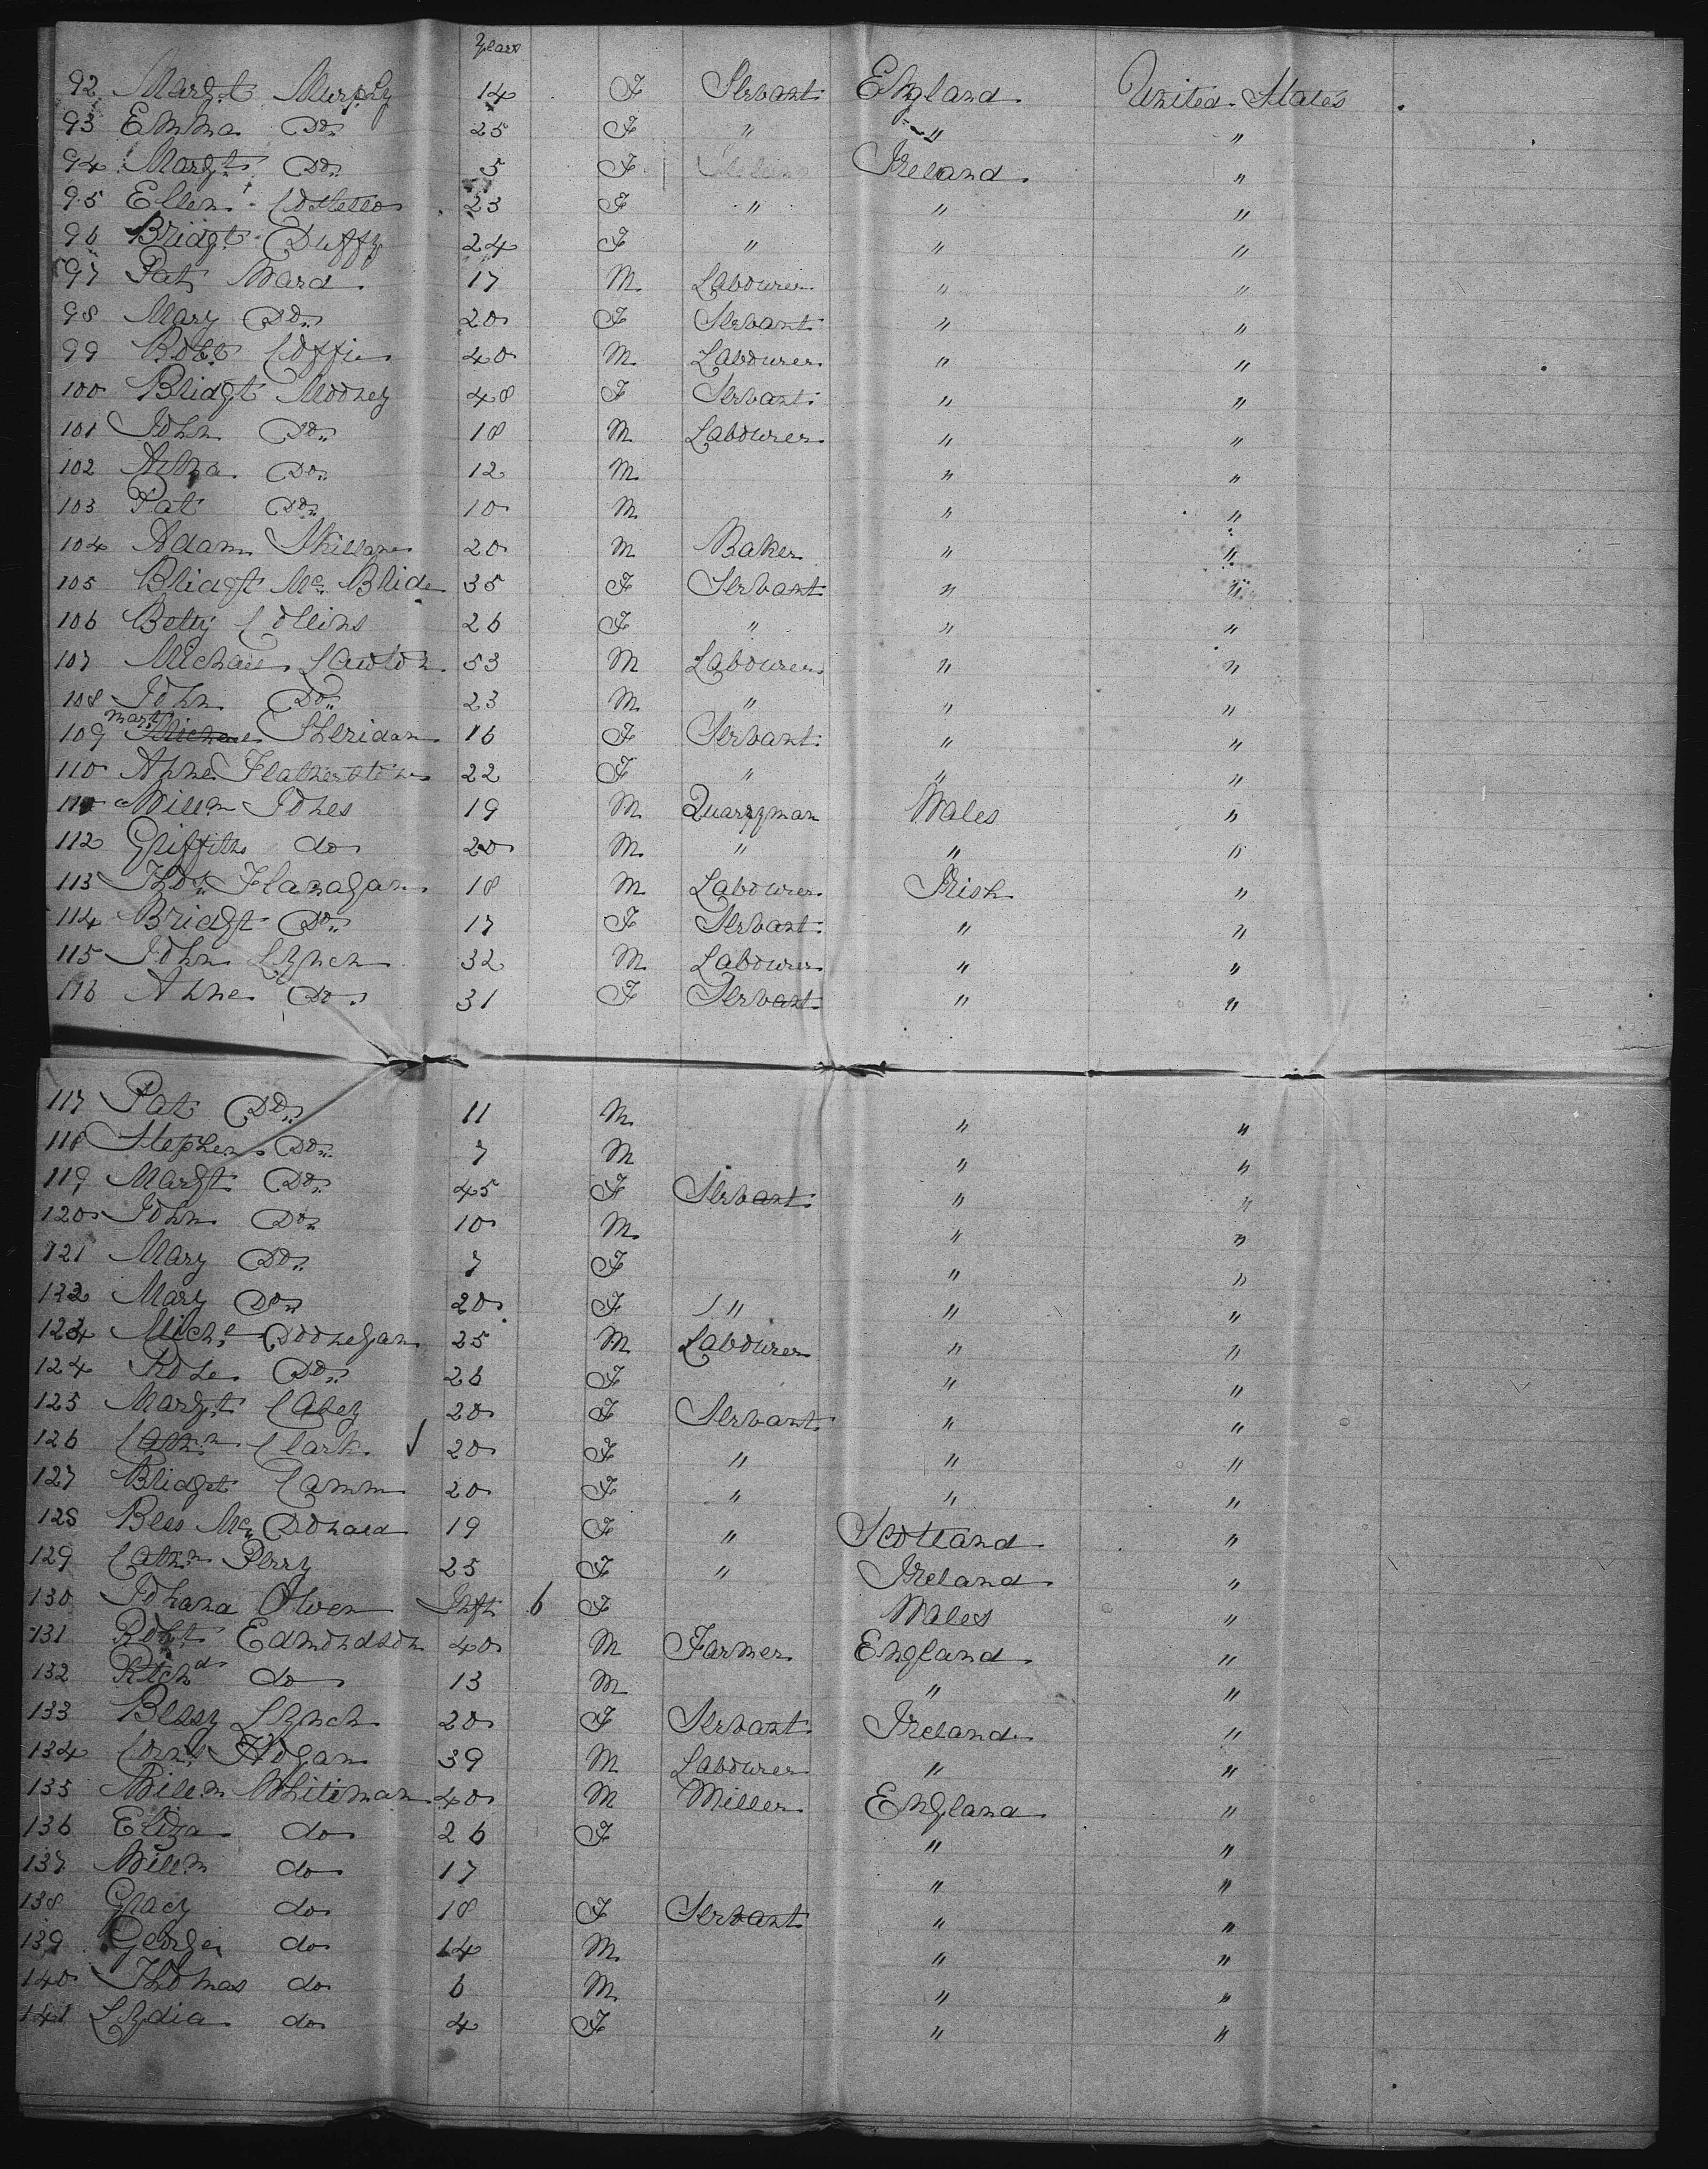 Years
92 Margt Murphy 14 F Servant England United States
93 Emma Do. 25 F " " "
94 Margt Do. 5 F Ireland "
95 Ellen Costello 23 F " " "
96 Bridgt Duffy 24 F " " "
97 Pat Ward 17 M Labourer " "
98 Mary Do. 20 F Servant " "
99 Robt Coffie 40 M Labourer " "
100 Bridgt Mooney 48 F Servant " "
101 John Do. 18 M Labourer " "
102 Do. 12 M " "
103 Pat Do. 10 M " "
104 Adam 20 M Baker " "
105 Bridgt Mc Bride 35 F Servant " "
106 Betty Collins 26 F " " "
107 Michael Lawton 53 M Labourer " "
108 John Do. 23 M " " "
109 Mart Sheridan 16 F Servant " "
110 Anne Featherstone 22 F " " "
111 Willm Jones 19 M Quarryman Wales "
112 Griffith do 20 M " " "
113 Thos. Flanagan 18 M Labourer Irish "
114 Bridgt Do. 17 F Servant " "
115 John Lynch 32 M Labourer " "
116 Anne Do. 31 F Servant " "
117 Pat Do. 11 M " "
118 Stephen Do. 7 M " "
119 Margt Do. 45 F Servant " "
120 John Do. 10 M " "
121 Mary Do. 7 F " "
122 Mary Do. 20 F " " "
123 Michl Doonegan 25 M Labourer " "
124 Rose Do. 26 F " "
125 Margt Casey 20 F Servant " "
126 Cathn Clark ✓ 20 F " " "
127 Bridget Camm 20 F " " "
128 Bess Mc Donald 19 F " Scotland "
129 Cathn Perry 25 F " Ireland "
130 Johana Owen Inft 6 F Wales "
131 Robt Edmondson 40 M Farmer England "
132 Richd do 13 M " "
133 Bessy Lynch 20 F Servant Ireland "
134 Corns Hogan 39 M Labourer " "
135 Willm Whiteman 40 M Miller England "
136 Eliza do 26 F " "
137 Willm do 17 " "
138 Gracy do 18 F Servant " "
139 George do 14 M " "
140 Thomas do 6 M " "
141 Lydia do 4 F " "